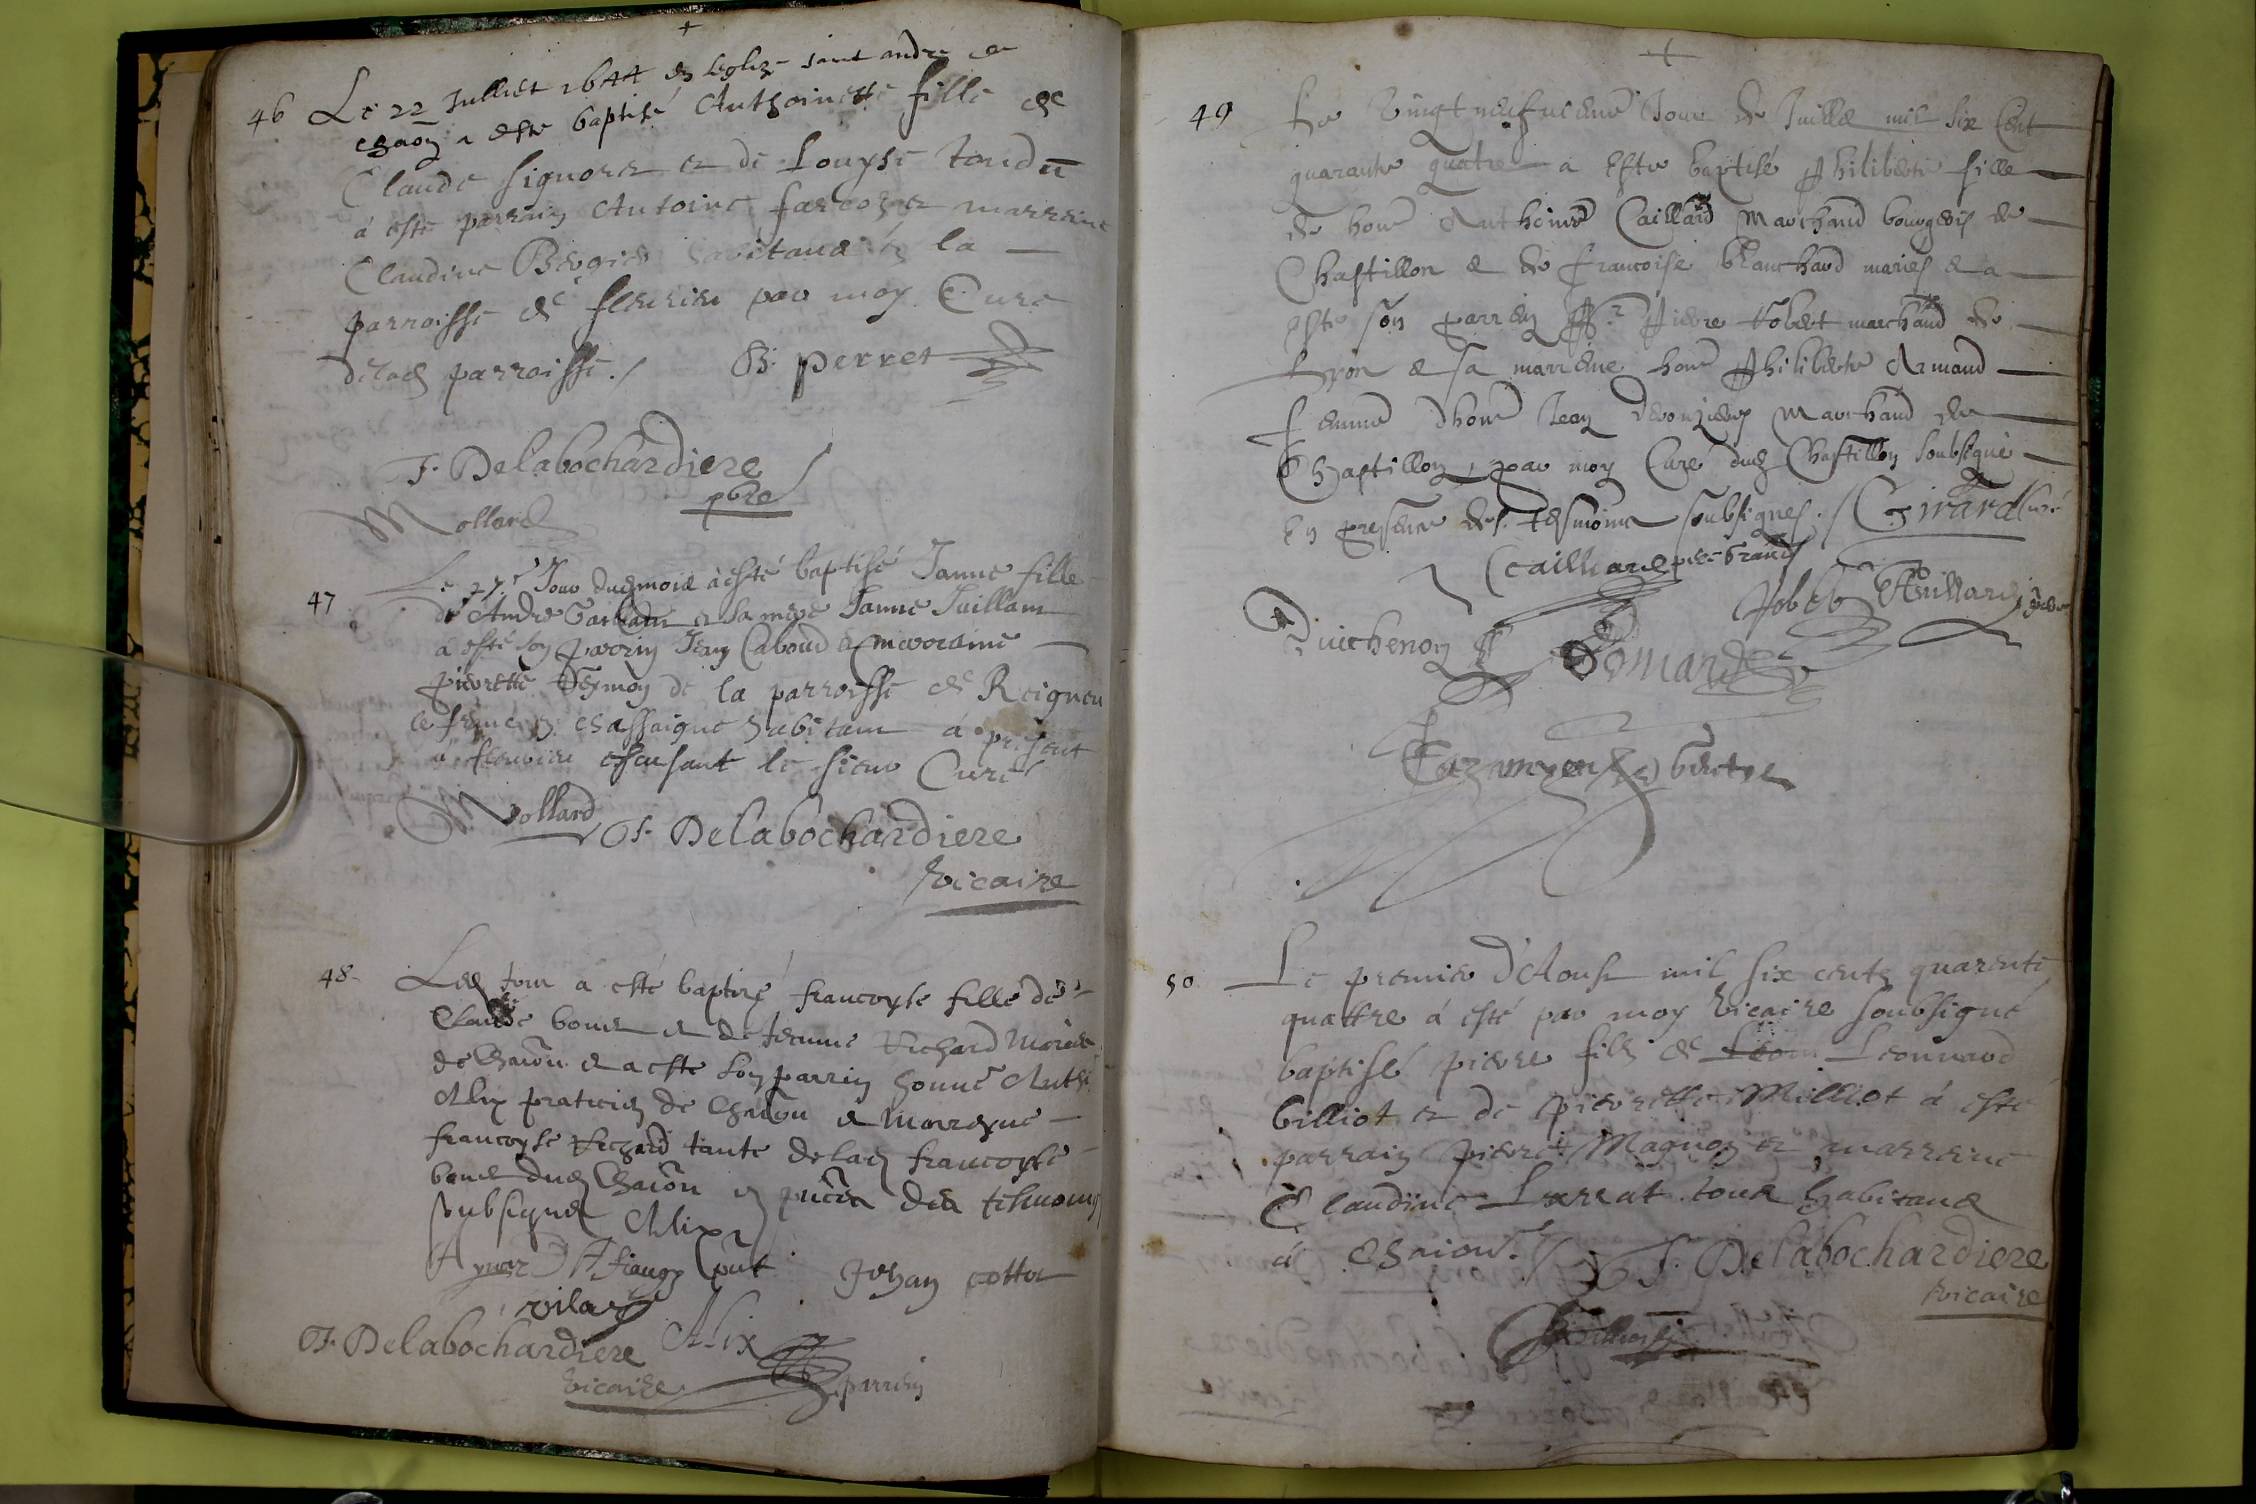 +
46 Le 22 Julliet 1644 en leglize saint andre de
chaōn a este baptisé Anthoinette fille de
Claude signoret et de Louyse tondū
á esté parrain Antoine farcoz et marreine
Claudine Bergier habitans en la
parroisse de fleurieu par moy Curé
delad parroisse. / B. perret
F. Delabochardiere
pbre
Mollard
47 Le 27.e Jour dudmois à esté baptisé Janne fille
de Andre et sa mere Janne Juillam
a esté son parrin Jean Caboud et marraine
pierrette de la parroisse de Reigneu
le franc chassaigne habitant á present
á fleurieu absent le sieur Curé
Mollard F. Delabochardiere
vicaire
48 Led Jour a esté baptizé francoyse fille de
Claude bonet et de Jeanne Richard Mariés
de Chaōn et a este son parrin honne Anth
Alix praticien de Chaōn et Marrayne
francoyse Richard tante delad francoyse
bonet dud Chaōn en pñce des tesmoins
soubsignes Alix
pñt Jehan cottet
vilar
F. Delabochardiere Alix
vicaire parrin
+
49 Le vingt neufvieme Jour de Juillet mil six Cent
quarante quatre a este baptisé Philiberte fille
de hon Anthoine Caillard Marchand bourgeois de
Chastillon et de francoise blanchard mariés et a
este son parrin Sr Pierre Jobert marchand de
Lyon et sa marreine hon Philiberte Armand
femme dhon Jean Marchand de
Chastillon, par moy Curé dud Chastillon soubsigné
En presence des tesmoins soubsignes. / Girard Curé
Caillard pere grand
Jobert Caillard pere
Guichenon Domand
50 Le premier d'Aoust mil six cents quarente
quattre á esté par moy vicaire soubsigné
baptisé pierre filz de Leonnard
billiot et de pierrette Milliot á esté
parrain pierre Magnon et marreine
Claudine Larrat tous habitans
á Chaion. / F. Delabochardiere
vicaire